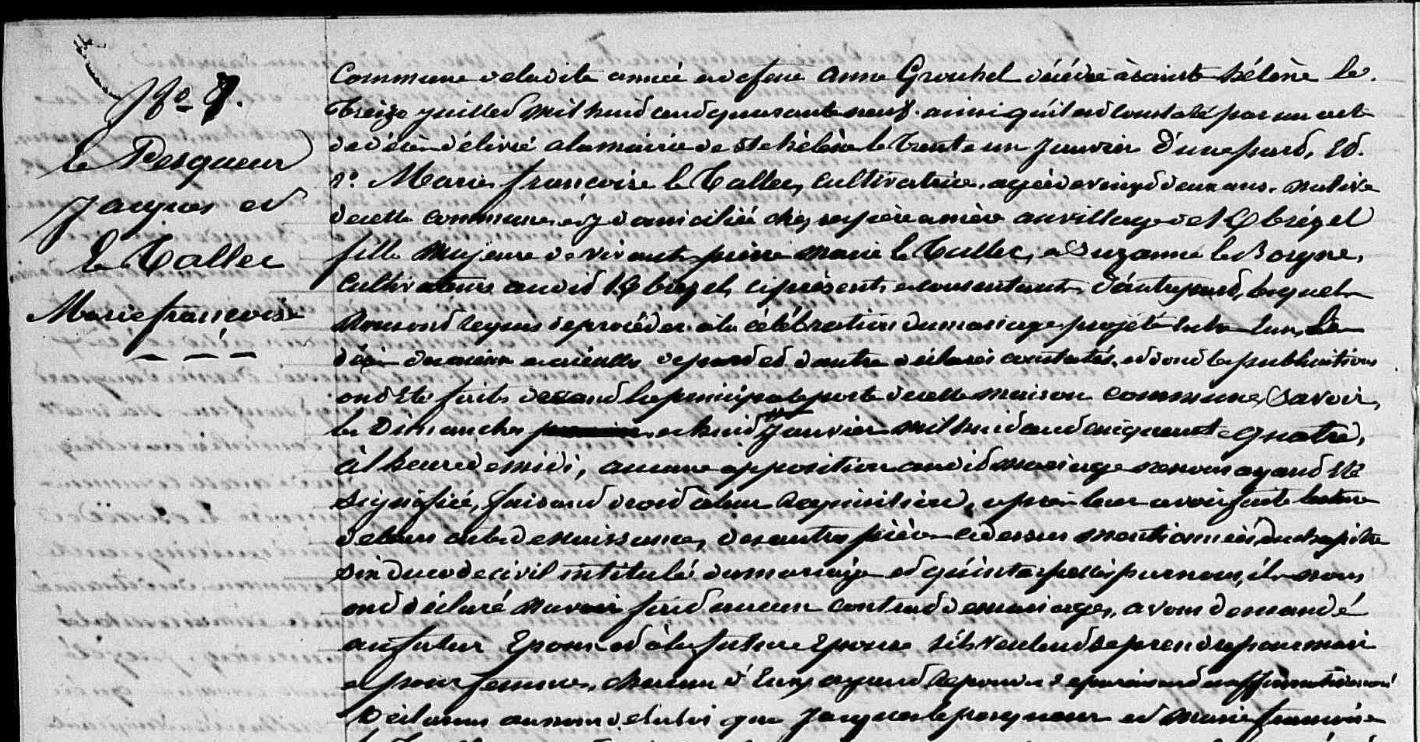 No 7.
le Pesqueur
Jacques et
Le Tallec
Marie françoise
Commune de ladite année et de feue Anne Grouhel décédée à Sainte Hélène le
treize juillet mil huit cent quarante neuf ainsi qu'il est constaté par un acte
de décès délivré à la mairie de Ste hélène le trente un Janvier d'une part, Et
2o Marie françoise le Tallec, cultivatrice agée de vingt deux ans native
de cette commune et y domiciliée chez ses père et mère au village de
fille majeure de vivants pierre marie le Tallec, et Suzanne le Borgne,
Cultivateurs audit ci présents et consentants, d'autre part, lesquels
nous ont requis de procéder à la célébration du mariage projeté entre eux,
de part et d'autre déclarés constatés, et dont les publications
ont Eté faites devant la principale porte de cette maison commune, Savoir,
les Dimanches et huit Janvier mil huit cent cinquante quatre,
à l'heure de midi, aucune opposition audit mariage ne nous ayant Eté
signifiée, faisant droit à leur réquisition, après leur avoir fait lecture
de leurs actes de naissance, des autres pièces ci dessus mentionnées, du chapitre
six du code civil intitulé du mariage et qu'interpellés par nous, ils nous
ont déclaré n'avoir fait aucun contrat de mariage, avons demandé
au futur Epoux et à la future Epouse s'ils veulent se prendre pour mari
et pour femme, chacun d'Eux ayant répondu séparément et affirmativement
Déclarons au nom de la loi que Jacques le pesqueur et marie françoise